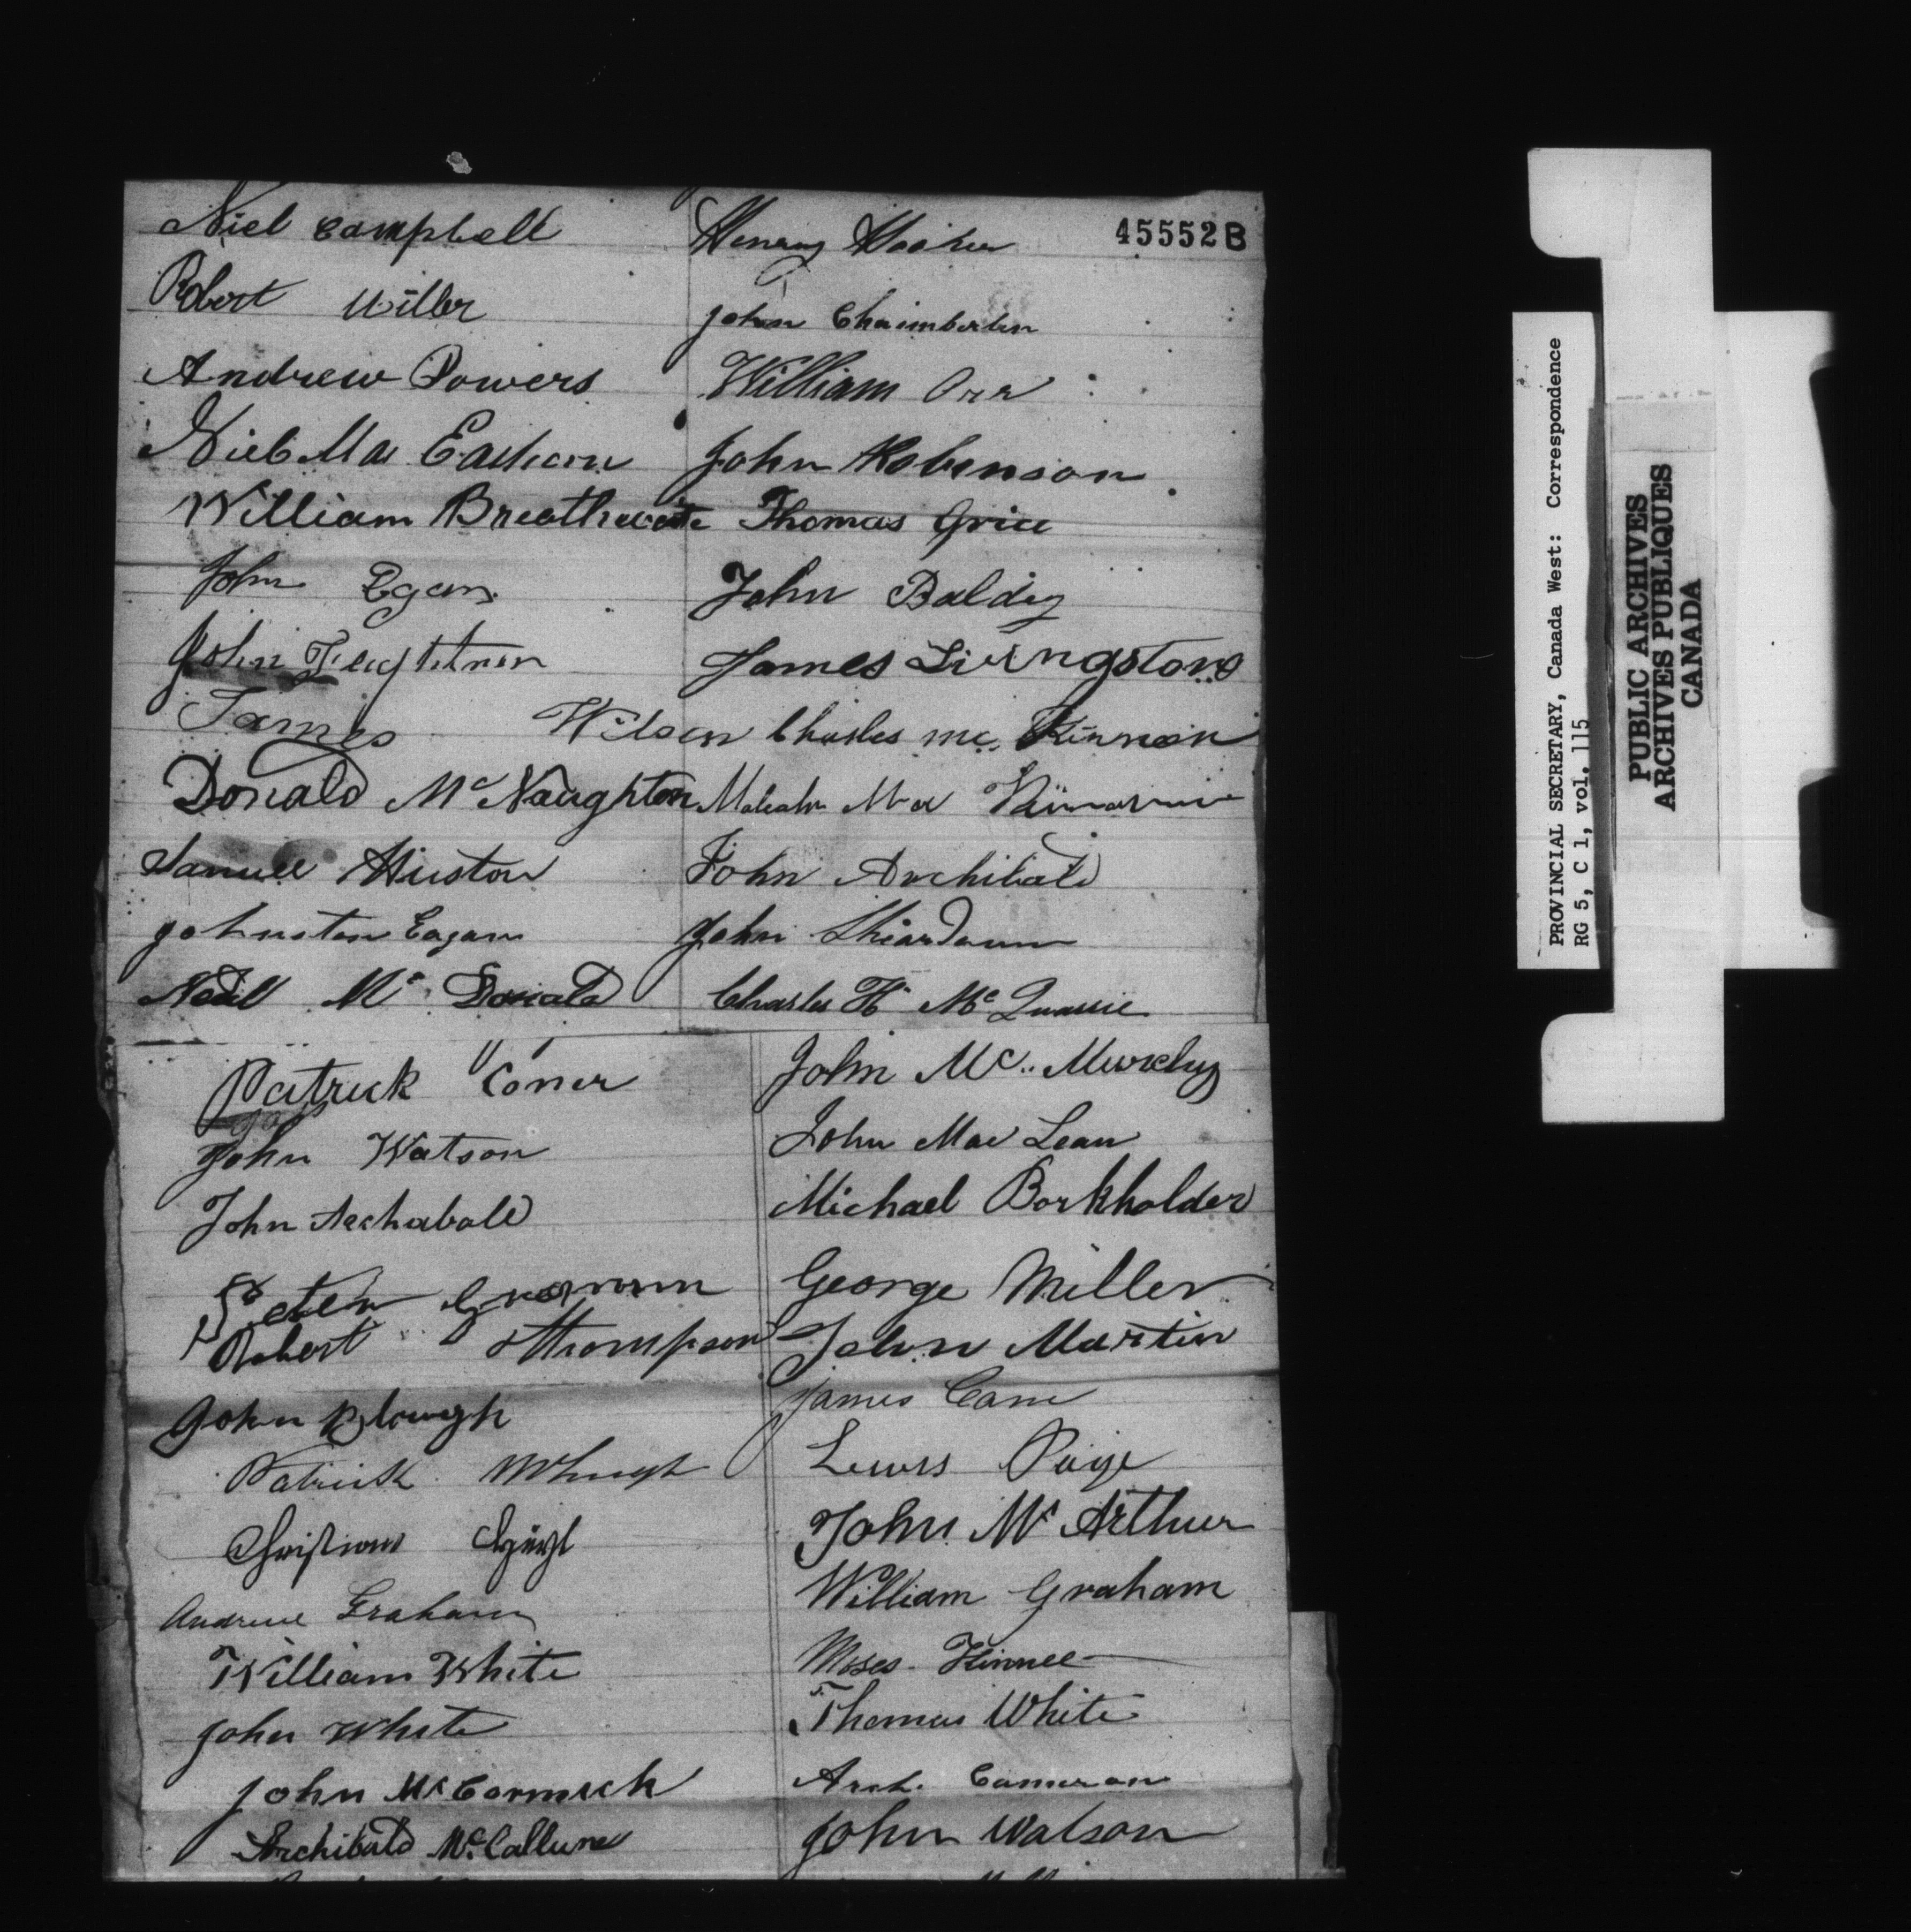 45552B
Niel Campbell
Robert Miller
Andrew Powers
Niel Mac Eachern
William Breathwaite
John Egan
John
James Wilson
Donald Mc Naughton
Samuel Huston
Johnston Eagan
Neill Mc Donald
Henry
John Chaimberlen
William Orr
John Robinson
Thomas Grice
John Baldey
James Livingstone
Charles mc Kinnon
Malcolm Mac
John Archibald
John
Charles H Mc Quarrie
Patrick Coner
John Watson
John Archabald
Peter
Robert Thompson
John Blough
Patrick McHugh
Andrew Graham
William White
John White
John Mc Cormick
Archibald Mc Callum
John Mc Murchy
John Mac Lean
Michael Borkholder
George Miller
John Martin
James Cane
Lewis Paige
John Mc Arthur
William Graham
Moses Kinnee
Thomas White
Arch. Cameron
John Watson
PROVINCIAL SECRETARY, Canada West: Correspondence
RG 5, C 1, vol. 115
PUBLIC ARCHIVES
ARCHIVES PUBLIQUES
CANADA